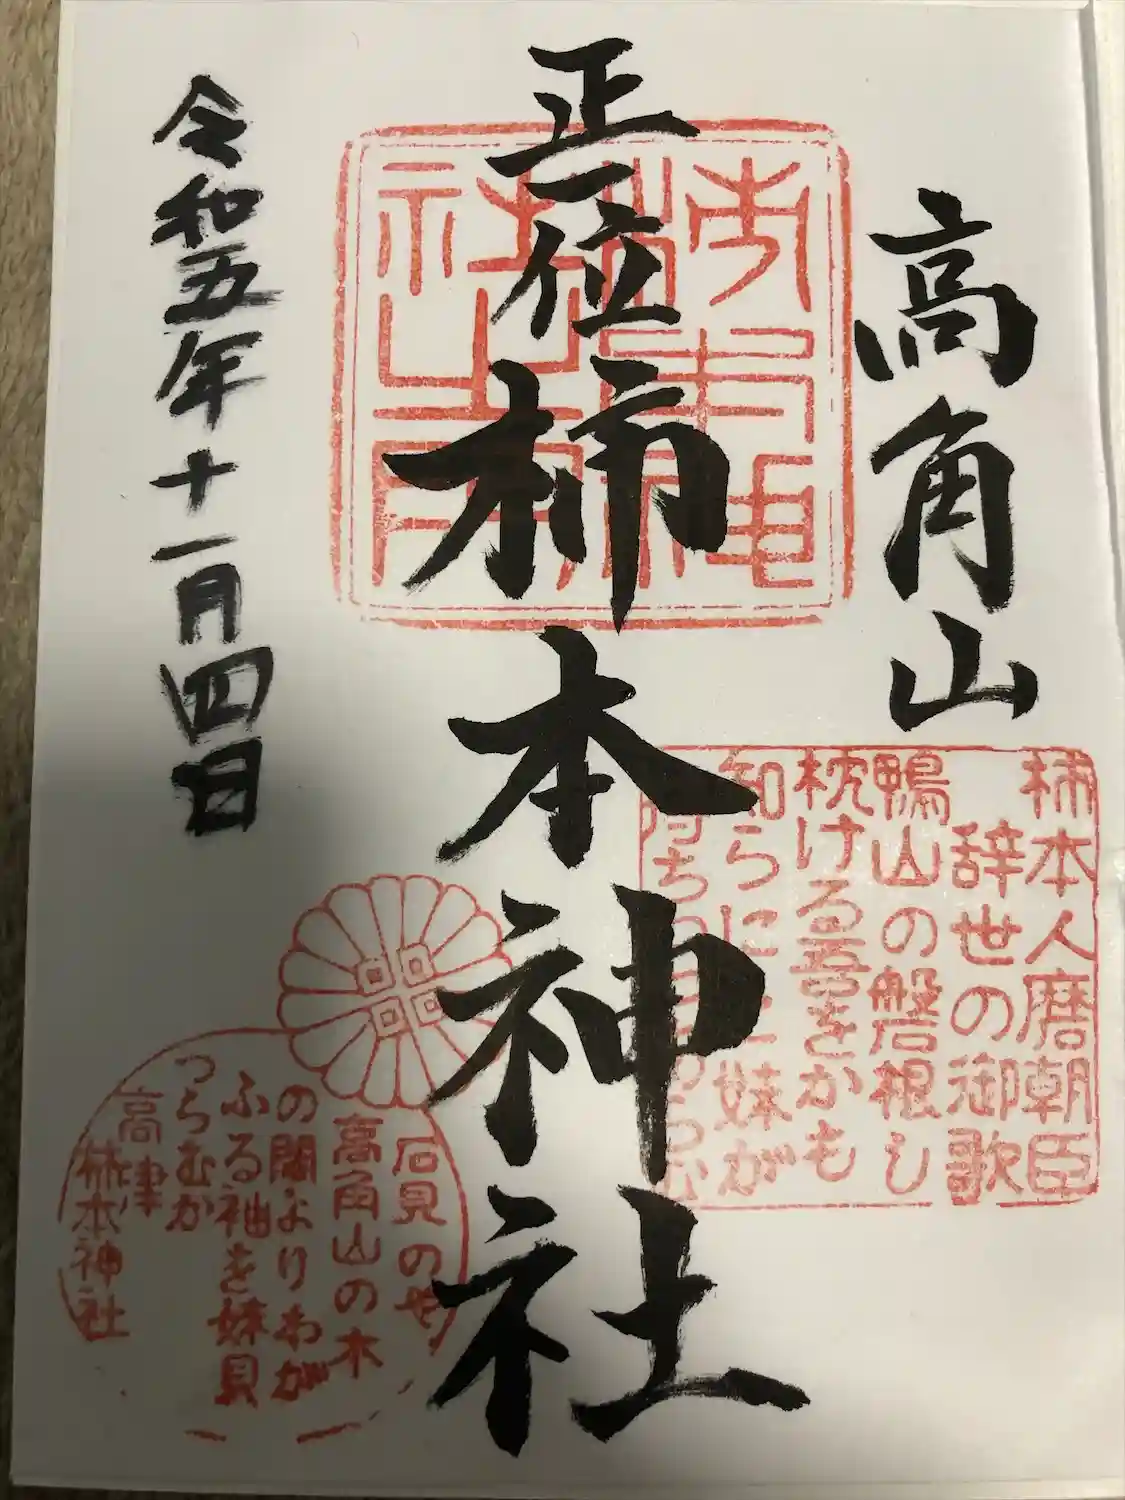 高角山
正一位柿本神社
令和五年十一月四日
柿本人麿朝臣
辞世の御歌
鴨山の磐根し
枕ける吾をかも
知らに 妹が
石見のや
高角山の木
の間よりわが
ふる袖を妹見
つらむか
高津
柿本神社